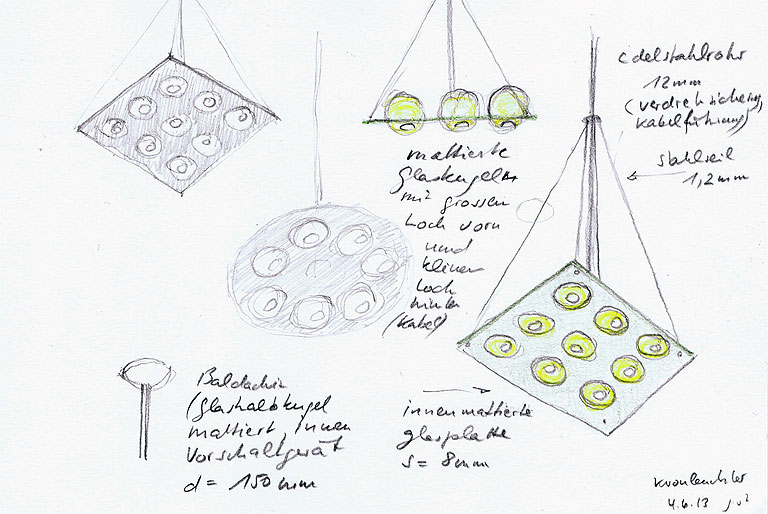 Edelstahlrohr
12mm
(verdrehsicherung,
Kabelführung)
Stahlseil
1,2mm
mattierte
Glaskugeln
mit grossen
Loch vorn
und
kleinen
Loch
hinten
(Kabel)
Baldachin
(Glashalbkugel
mattiert, innen
Vorschaltgerät
d = 150mm
innenmattierte
glasplatte
s = 8mm
Kronleuchter
4.6.13